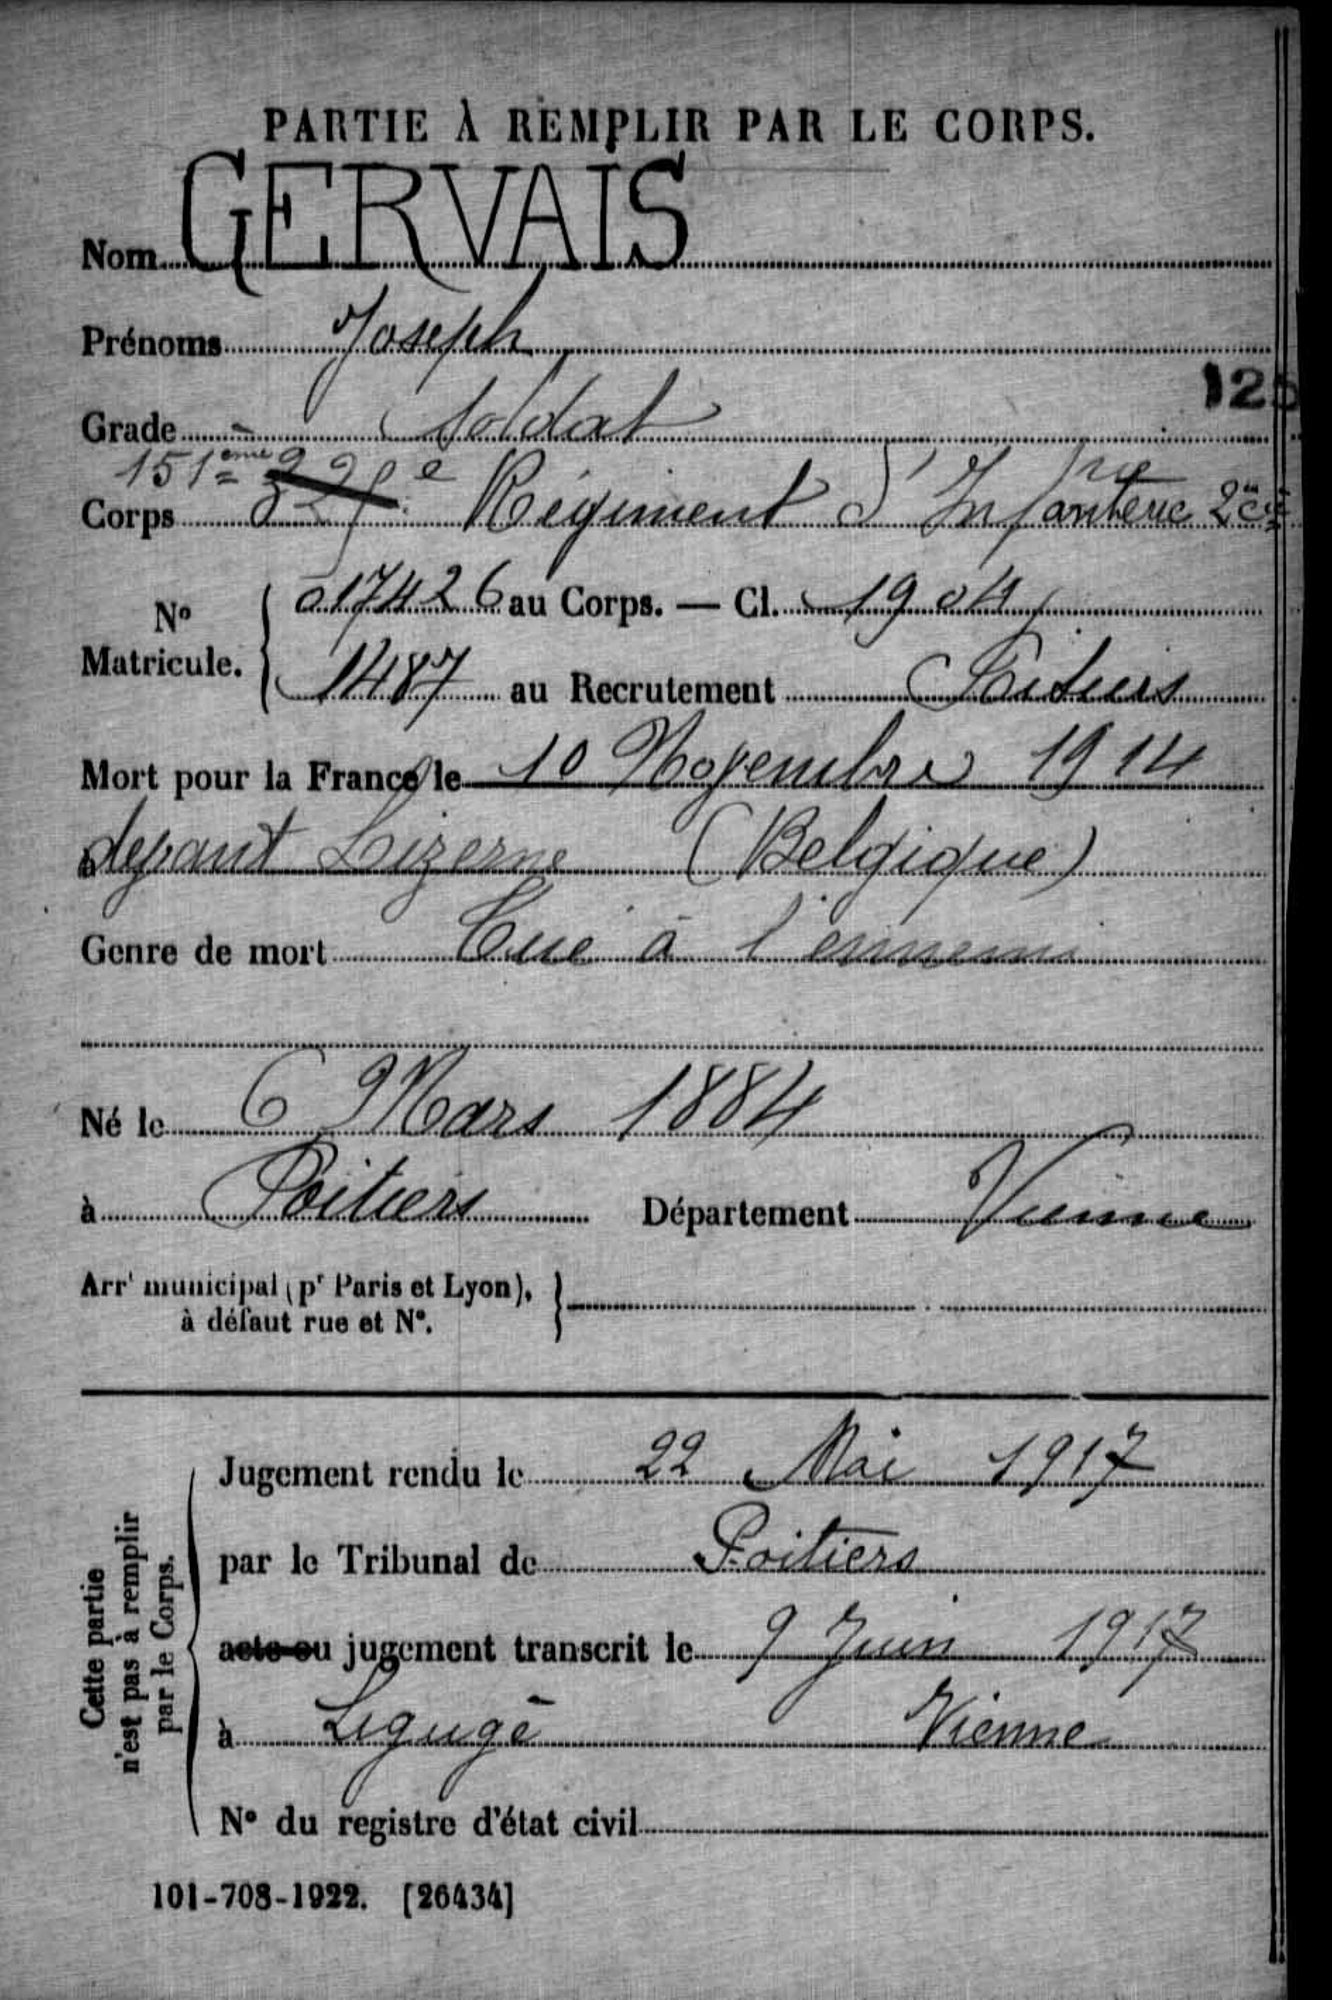 PARTIE À REMPLIR PAR LE CORPS.
Nom GERVAIS
Prénoms Joseph
Grade Soldat
125
151ème
Corps 325e Régiment d'Infanterie 2e Cie
No Matricule. 017426 au Corps. — Cl. 1904
1487 au Recrutement Poitiers
Mort pour la France le 10 Novembre 1914
à devant Lizerne (Belgique)
Genre de mort Tué à l'ennemi
Né le 6 Mars 1884
à Poitiers Département Vienne
Arrt municipal (pr Paris et Lyon),
à défaut rue et No.
Cette partie
n'est pas à remplir
par le Corps.
Jugement rendu le 22 Mai 1917
par le Tribunal de Poitiers
acte ou jugement transcrit le 9 Juin 1917
à Ligugé Vienne
No du registre d'état civil
101-708-1922. [26434]